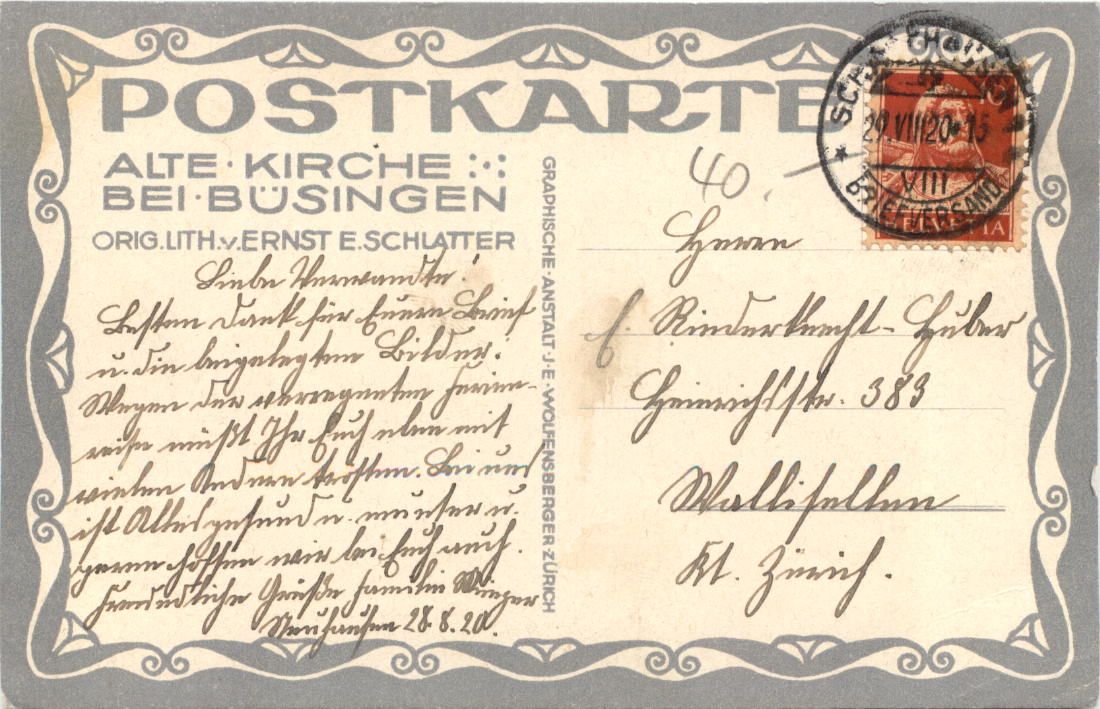 POSTKARTE
ALTE · KIRCHE
BEI · BÜSINGEN
ORIG. LITH. v. ERNST E. SCHLATTER
Liebe Verwandte!
Besten Dank für Euern Brief
u. die beigelegten Bilder.
Wegen der verregneten Ferien-
reise müßt Ihr Euch eben mit
vielen Andern trösten. Bei uns
ist Alles gesund u. munter u.
gerne hoffen wir bei Euch auch.
Freundliche Grüße Familie
Neuhausen 28.8.20.
GRAPHISCHE · ANSTALT J · E · WOLFENSBERGER ZÜRICH
40.-
SCHAFFHAUSEN
29.VIII.20-15
VIII
BRIEFVERSAND
10
HELVETIA
Herrn
Rinderknecht-Huber
Heinrichstr. 383
Wallisellen
Kt. Zürich.